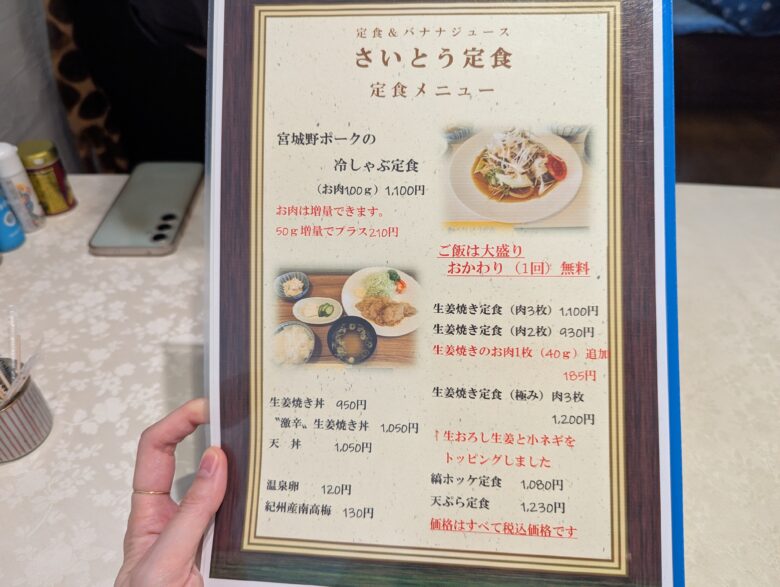 定食＆バナナジュース
さいとう定食
定食メニュー
宮城野ポークの
冷しゃぶ定食
（お肉100g）1,100円
お肉は増量できます。
50g増量でプラス210円
ご飯は大盛り
おかわり（1回）無料
生姜焼き定食（肉3枚）1,100円
生姜焼き定食（肉2枚）930円
生姜焼きのお肉1枚（40g）追加
185円
生姜焼き定食（極み）肉3枚
1,200円
↑生おろし生姜と小ネギを
トッピングしました
縞ホッケ定食 1,080円
天ぷら定食 1,230円
価格はすべて税込価格です
生姜焼き丼 950円
〝激辛〟生姜焼き丼 1,050円
天丼 1,050円
温泉卵 120円
紀州産南高梅 130円